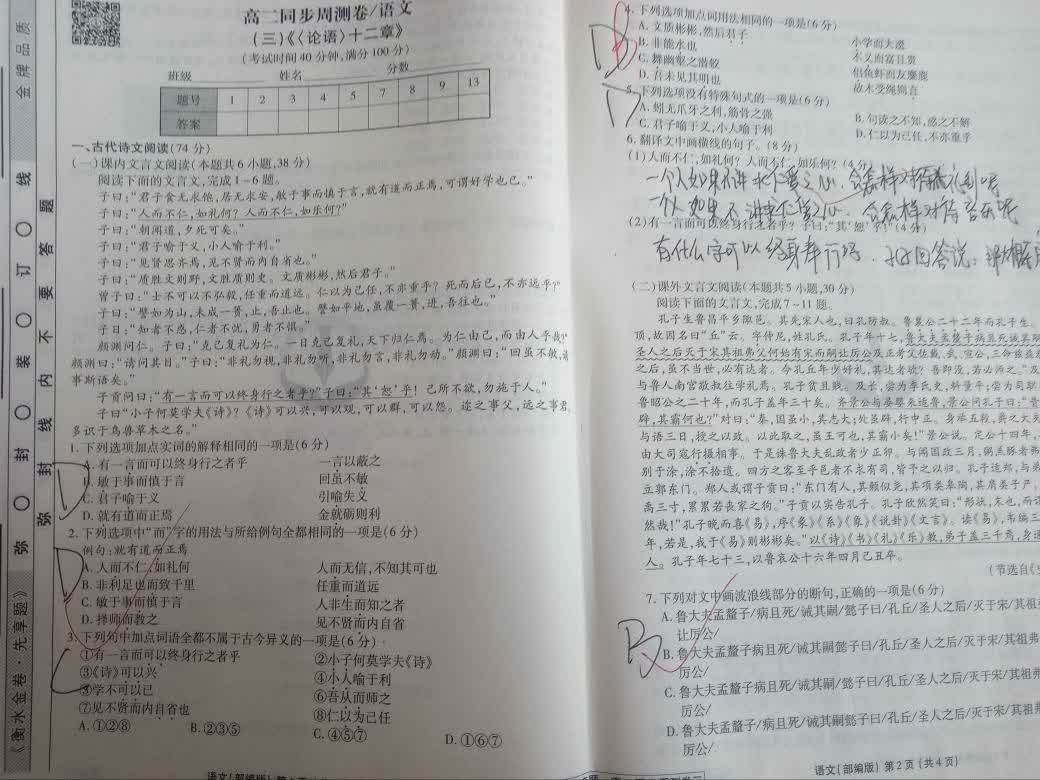 高二同步周测卷/语文
(三)《〈论语〉十二章》
(考试时间40分钟,满分100分)
班级 姓名 分数
题号 1 2 3 4 5 6 7 8 9 13
答案
一、古代诗文阅读(74分)
(一)课内文言文阅读(本题共6小题,38分)
阅读下面的文言文,完成1~6题。
子曰:“君子食无求饱,居无求安,敏于事而慎于言,就有道而正焉,可谓好学也已。”
子曰:“人而不仁,如礼何?人而不仁,如乐何?”
子曰:“朝闻道,夕死可矣。”
子曰:“君子喻于义,小人喻于利。”
子曰:“见贤思齐焉,见不贤而内自省也。”
子曰:“质胜文则野,文胜质则史。文质彬彬,然后君子。”
曾子曰:“士不可以不弘毅,任重而道远。仁以为己任,不亦重乎?死而后已,不亦远乎?”
子曰:“譬如为山,未成一篑,止,吾止也。譬如平地,虽覆一篑,进,吾往也。”
子曰:“知者不惑,仁者不忧,勇者不惧。”
颜渊问仁。子曰:“克己复礼为仁。一日克己复礼,天下归仁焉。为仁由己,而由人乎哉?”
颜渊曰:“请问其目。”子曰:“非礼勿视,非礼勿听,非礼勿言,非礼勿动。”颜渊曰:“回虽不敏,请
事斯语矣。”
子贡问曰:“有一言而可以终身行之者乎?”子曰:“其‘恕’乎!己所不欲,勿施于人。”
子曰“小子何莫学夫《诗》?《诗》可以兴,可以观,可以群,可以怨。迩之事父,远之事君,
多识于鸟兽草木之名。”
1.下列选项加点实词的解释相同的一项是(6分)
A.有一言而可以终身行之者乎 一言以蔽之
B.敏于事而慎于言 回虽不敏
C.君子喻于义 引喻失义
D.就有道而正焉 金就砺则利
2.下列选项中“而”字的用法与所给例句全都相同的一项是(6分)
例句:就有道而正焉
A.人而不仁,如礼何 人而无信,不知其可也
B.非利足也而致千里 任重而道远
C.敏于事而慎于言 人非生而知之者
D.择师而教之 见不贤而内自省
3.下列句中加点词语全都不属于古今异义的一项是(6分)
①有一言而可以终身行之者乎 ②小子何莫学夫《诗》
③《诗》可以兴 ④小人喻于利
⑤学不可以已 ⑥吾从而师之
⑦见不贤而内自省也 ⑧仁以为己任
A.①②⑧ B.②③⑤ C.④⑤⑦ D.①⑥⑦
4.下列选项加点词用法相同的一项是(6分)
A.文质彬彬,然后君子 小学而大遗
B.非能水也 不义而富且贵
C.舞幽壑之潜蛟 侣鱼虾而友麋鹿
D.吾未见其明也 故木受绳则直
5.下列选项没有特殊句式的一项是(6分)
A.蚓无爪牙之利,筋骨之强 B.句读之不知,惑之不解
C.君子喻于义,小人喻于利 D.仁以为己任,不亦重乎
6.翻译文中画横线的句子。(8分)
(1)人而不仁,如礼何?人而不仁,如乐何?(4分)
(2)有一言而可以终身行之者乎?子曰:“其‘恕’乎!”(4分)
(二)课外文言文阅读(本题共5小题,30分)
阅读下面的文言文,完成7~11题。
孔子生鲁昌平乡陬邑。其先宋人也,曰孔防叔。鲁襄公二十二年而孔子生。
顶,故因名曰“丘”云。字仲尼,姓孔氏。孔子年十七,鲁大夫孟釐子病且死诫其嗣
圣人之后灭于宋其祖弗父何始有宋而嗣让厉公及正考父佐戴、武、宣公,三命兹益
之后,虽不当世,必有达者。今孔丘年少好礼,其达者欤?吾即没,若必师之。”及
与鲁人南宫敬叔往学礼焉。孔子贫且贱。及长,尝为季氏史,料量平;尝为司职
鲁昭公之二十年,而孔子盖年三十矣。齐景公与晏婴来适鲁,景公问孔子曰:“昔
辟,其霸何也?”对曰:“秦,国虽小,其志大;处虽辟,行中正。身举五羖,爵之大夫
与语三日,授之以政。以此取之,虽王可也,其霸小矣!”景公说。定公十四年,
由大司寇行摄相事。于是诛鲁大夫乱政者少正卯。与闻国政三月,粥羔豚者弗
别于涂,涂不拾遗。四方之客至乎邑者不求有司,皆予之以归。孔子适郑,与弟
立郭东门。郑人或谓子贡曰:“东门有人,其颡似尧,其项类皋陶,其肩类子产,
禹三寸,累累若丧家之狗。”子贡以实告孔子。孔子欣然笑曰:“形状,末也,而谓
然哉!”孔子晚而喜《易》,序《彖》《系》《象》《说卦》《文言》。读《易》,韦编三
年,若是,我于《易》则彬彬矣。”以《诗》《书》《礼》《乐》教,弟子盖三千焉,身通
人。孔子年七十三,以鲁哀公十六年四月己丑卒。
(节选自《史
7.下列对文中画波浪线部分的断句,正确的一项是(6分)
A.鲁大夫孟釐子/病且死/诫其嗣/懿子曰/孔丘/圣人之后/灭于宋/其祖弗
让厉公/
B.鲁大夫孟釐子病且死/诫其嗣懿子曰/孔丘/圣人之后/灭于宋/其祖弗
厉公/
C.鲁大夫孟釐子病且死/诫其嗣/懿子曰/孔丘/圣人之后/灭于宋/其祖弗
厉公/
D.鲁大夫孟釐子/病且死/诫其嗣懿子曰/孔丘/圣人之后/灭于宋/其祖弗
厉公/
语文(部编版) 第2页(共4页)
金牌品质
弥 封 装 订 线
弥 封 线 内 不 要 答 题
《衡水金卷·先享题》